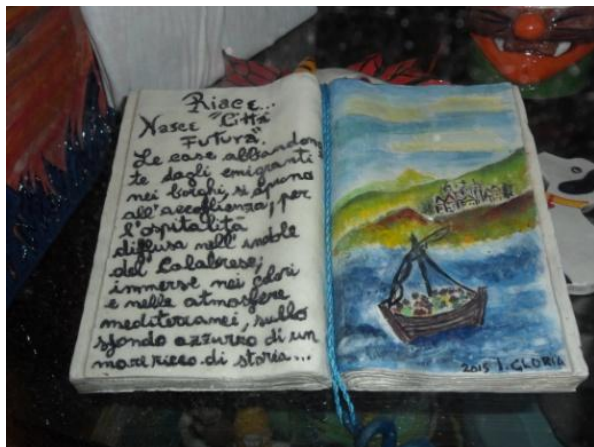 Riace...
Nasce "Città
Futura".
Le case abbandona
te dagli emigranti
nei borghi, si aprono
all'accoglienza, per
l'ospitalità
diffusa nell'indole
del Calabrese;
immerse nei colori
e nelle atmosfere
mediterranei, sullo
sfondo azzurro di un
mare ricco di storia...
2015 I. GLORIA